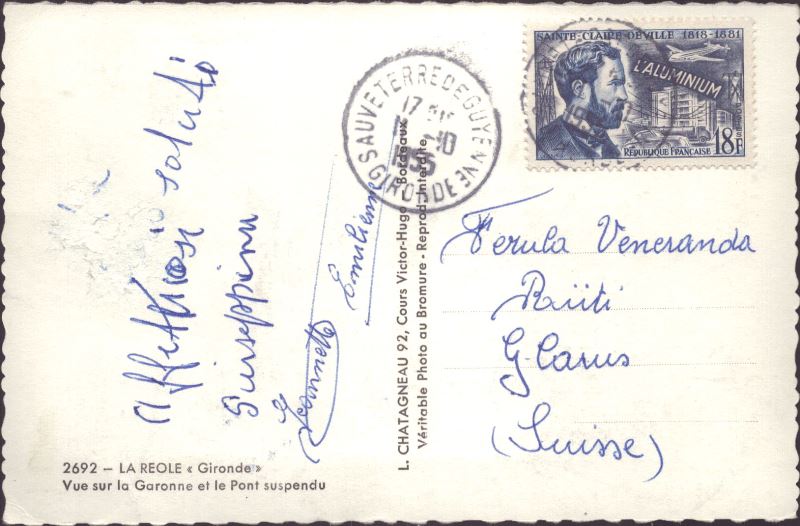 Affettuosi saluti
Giuseppina
Jeannette
Emilienne
2692 — LA REOLE « Gironde »
Vue sur la Garonne et le Pont suspendu
L. CHATAGNEAU 92, Cours Victor-Hugo Bordeaux
Véritable Photo au Bromure - Reprod. Interdite
SAUVETERRE DE GUYENNE
17
10
1955
GIRONDE
SAINTE-CLAIRE DEVILLE 1818-1881
L'ALUMINIUM
RÉPUBLIQUE FRANÇAISE
18F
POSTES
Ferula Veneranda
Rüti
Glarus
(Suisse)